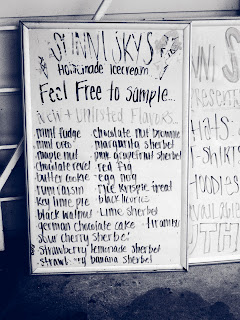 SUNNI SKYS
Homemade Icecream
Feel Free to sample...
New + Unlisted Flavors...
mint fudge - chocolate nut brownie
mint oreo - margarita sherbet
maple nut - pink grapefruit sherbet
chocolate revel - red fig
butter cookie - egg nog
rum raisin - rice krispie treat
key lime pie - black licorice
black walnut - lime sherbet
german chocolate cake - tiramisu
sour cherry sherbet
strawberry lemonade sherbet
strawberry banana sherbet
HATS
T-SHIRTS
HOODIES